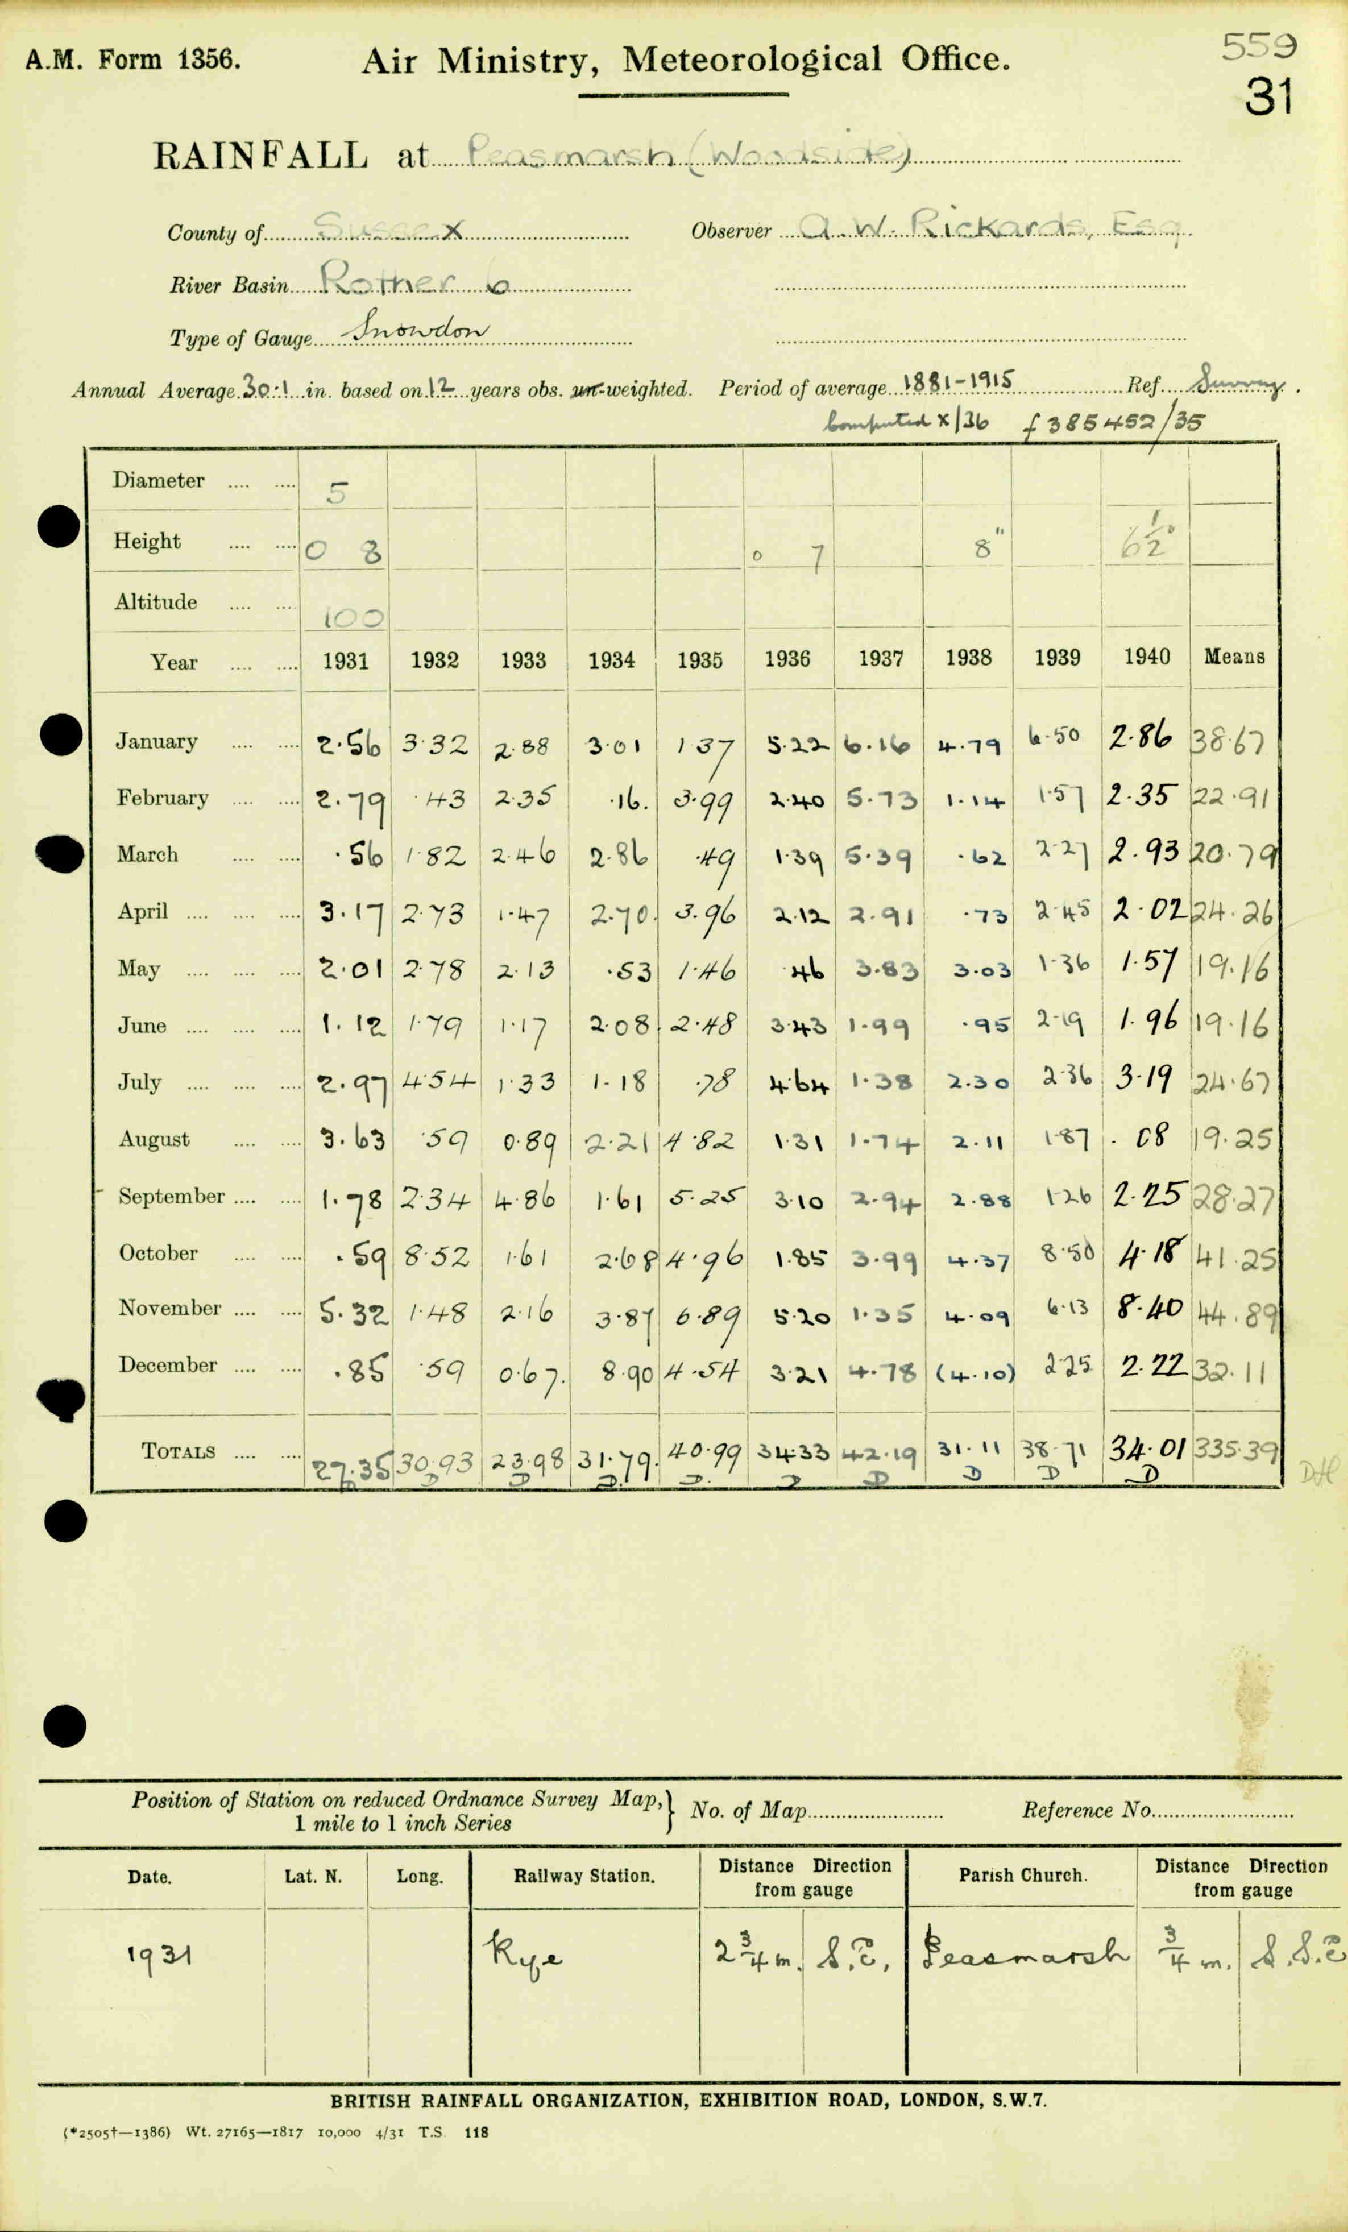 A.M. Form 1356.
Air Ministry, Meteorological Office.
559
31
RAINFALL at Peasmarsh (Woodside)
County of Sussex Observer A. W. Rickards, Esq
River Basin Rother 6
Type of Gauge Snowdon
Annual Average 30.1 in. based on 12 years obs. un-weighted. Period of average 1881-1915 Ref. Survey.
Computed X/36 f 385452/35
Diameter 5
Height 0 8 0 7 8" 6½"
Altitude 100
Year 1931 1932 1933 1934 1935 1936 1937 1938 1939 1940 Means
January 2.56 3.32 2.88 3.01 1.37 5.22 6.16 4.79 6.50 2.86 38.67
February 2.79 .43 2.35 .16. 3.99 2.40 5.73 1.14 1.57 2.35 22.91
March .56 1.82 2.46 2.86 .49 1.39 5.39 .62 2.27 2.93 20.79
April 3.17 2.73 1.47 2.70. 3.96 2.12 2.91 .73 2.45 2.02 24.26
May 2.01 2.78 2.13 .53 1.46 .46 3.83 3.03 1.36 1.57 19.16
June 1.12 1.79 1.17 2.08 2.48 3.43 1.99 .95 2.19 1.96 19.16
July 2.97 4.54 1.33 1.18 .78 4.64 1.38 2.30 2.36 3.19 24.67
August 3.63 .59 0.89 2.21 4.82 1.31 1.74 2.11 1.87 .08 19.25
September 1.78 2.34 4.86 1.61 5.25 3.10 2.94 2.88 1.26 2.25 28.27
October .59 8.52 1.61 2.68 4.96 1.85 3.99 4.37 8.50 4.18 41.25
November 5.32 1.48 2.16 3.87 6.89 5.20 1.35 4.09 6.13 8.40 44.89
December .85 .59 0.67. 8.90 4.54 3.21 4.78 (4.10) 2.25 2.22 32.11
TOTALS 27.35 30.93 23.98 31.79. 40.99 34.33 42.19 31.11 38.71 34.01 335.39
D D D D. D D D D D DH
Position of Station on reduced Ordnance Survey Map, } No. of Map Reference No.
1 mile to 1 inch Series
Date. Lat. N. Long. Railway Station. Distance Direction from gauge Parish Church. Distance Direction from gauge
1931 Rye 2¾ m. S.E. Peasmarsh ¾ m. S.S.E
BRITISH RAINFALL ORGANIZATION, EXHIBITION ROAD, LONDON, S.W.7.
(*2505†—1386) Wt. 27165—1817 10,000 4/31 T.S. 118